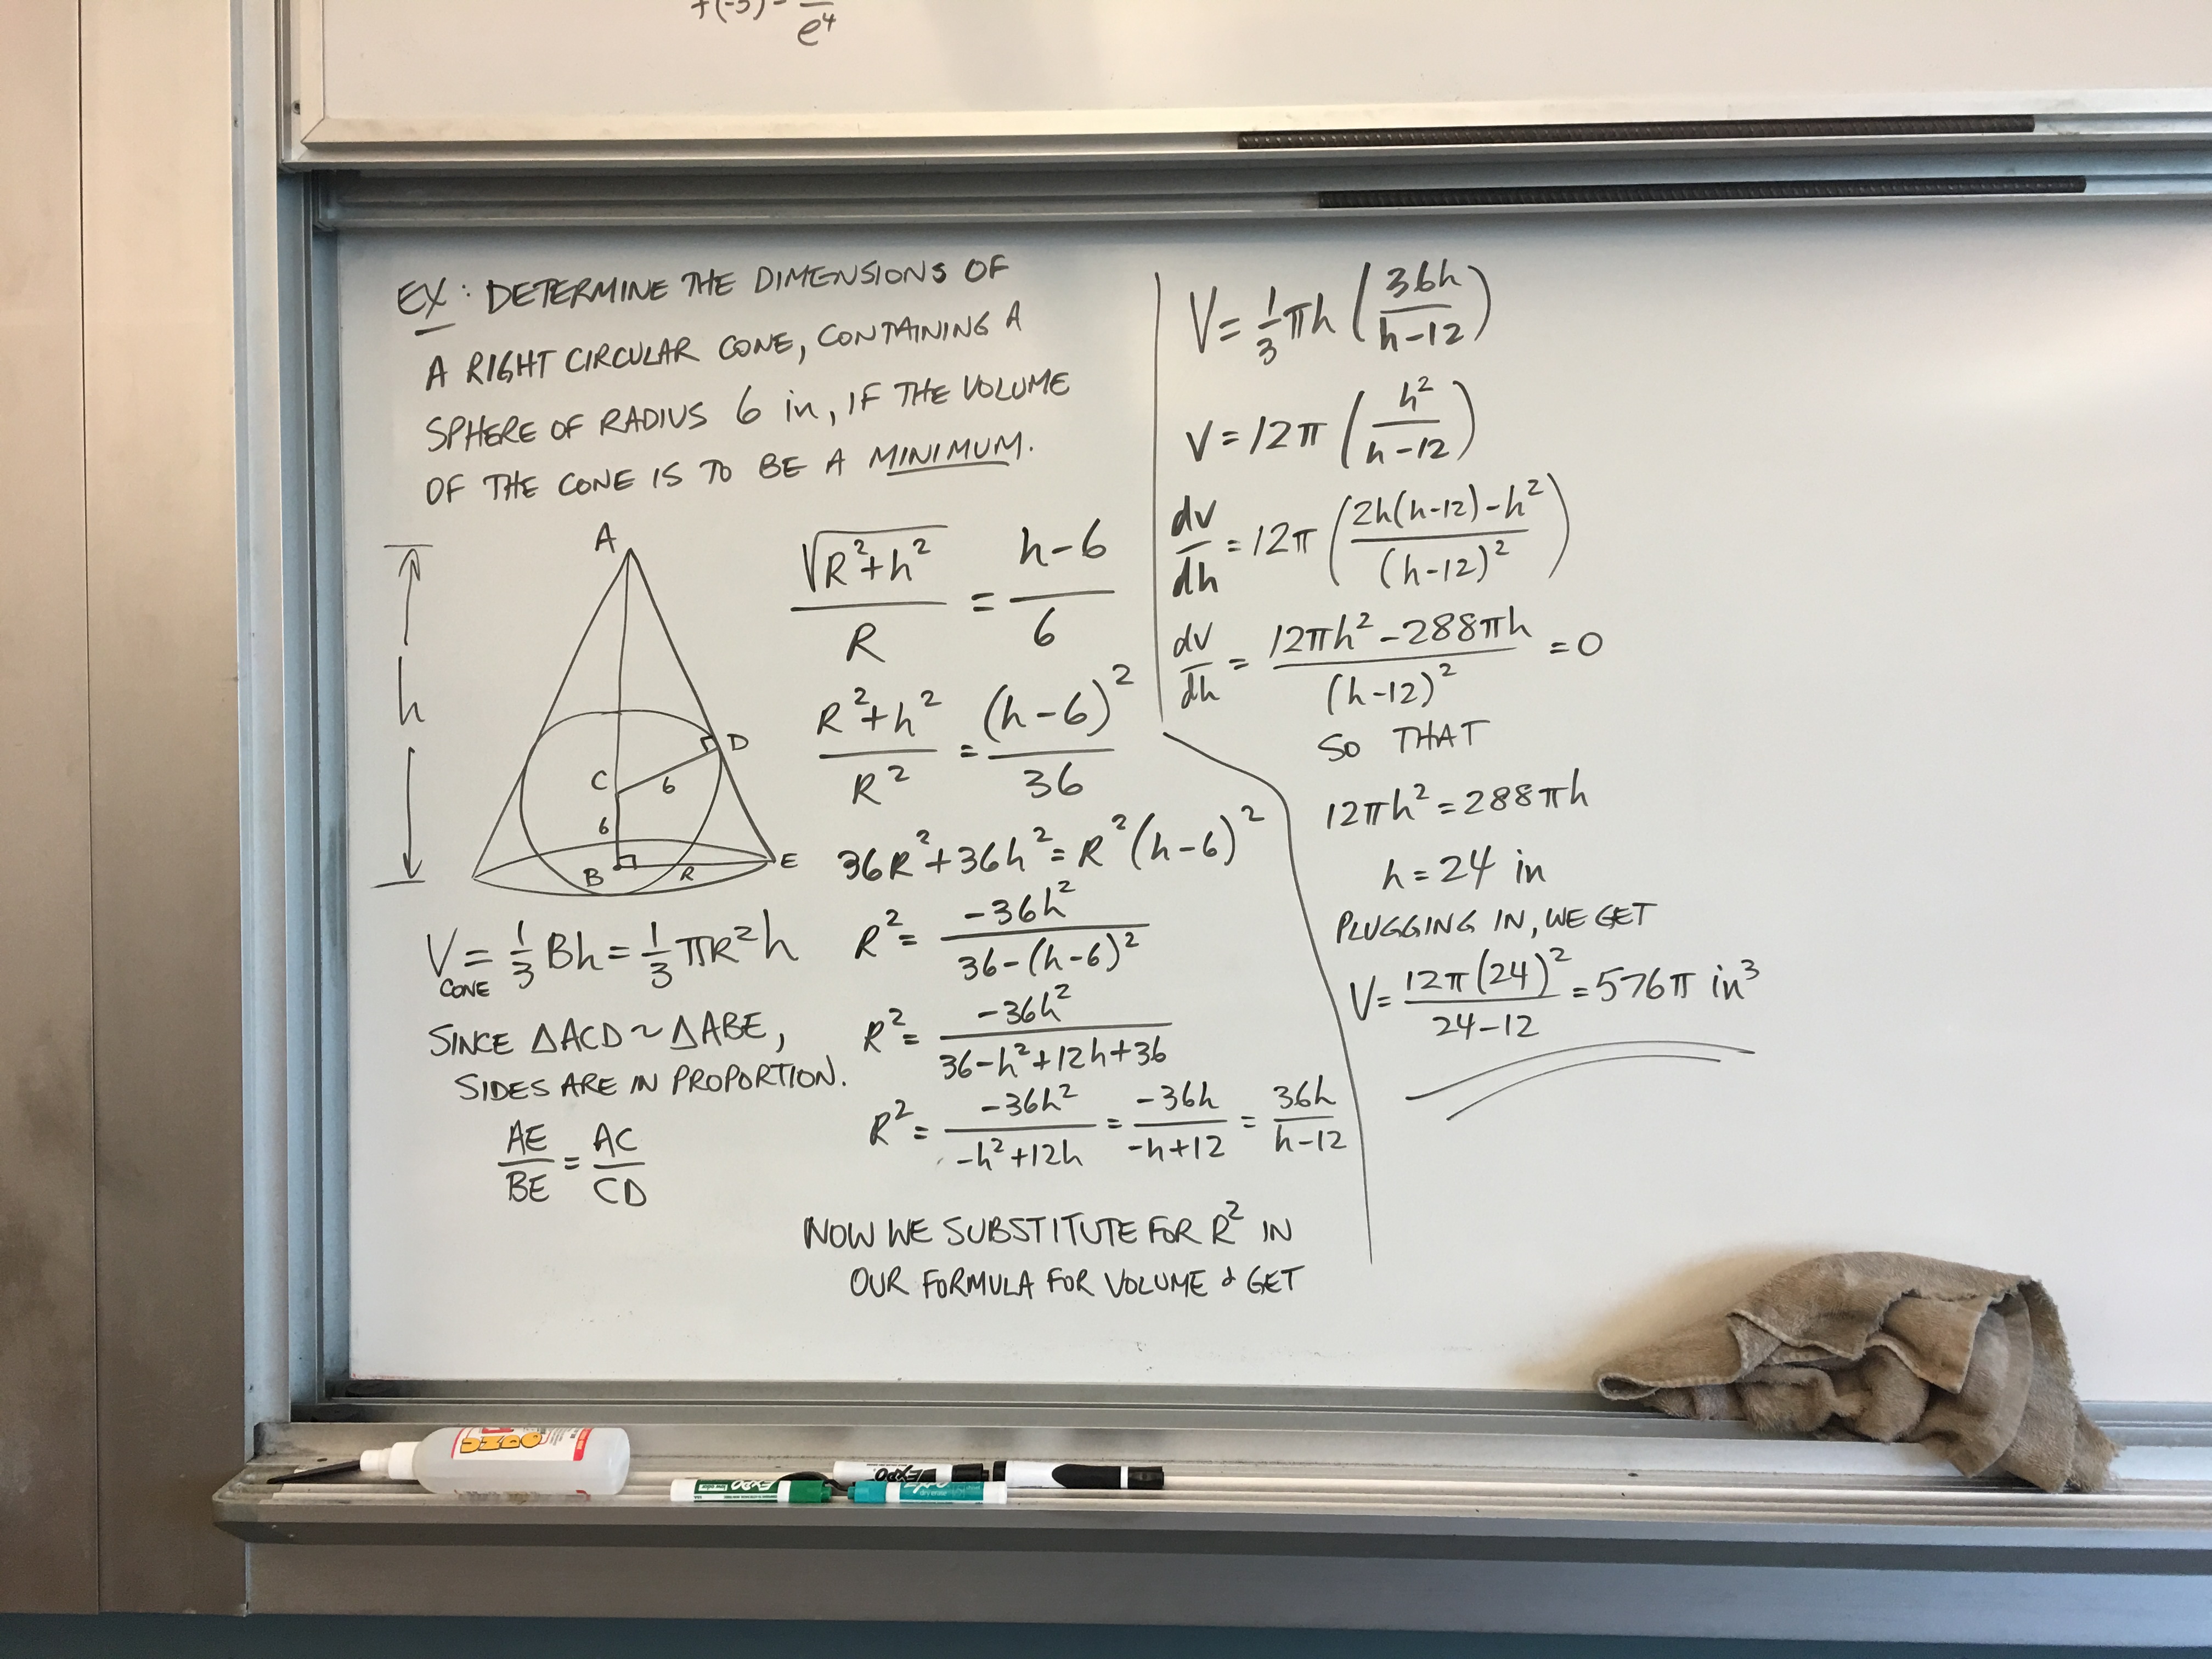 e⁴
EX: DETERMINE THE DIMENSIONS OF
A RIGHT CIRCULAR CONE, CONTAINING A
SPHERE OF RADIUS 6 in, IF THE VOLUME
OF THE CONE IS TO BE A MINIMUM.
A
h
D
C
6
6
B
R
E
V CONE = 1/3 Bh = 1/3 πR²h
SINCE ΔACD ~ ΔABE,
SIDES ARE IN PROPORTION.
AE/BE = AC/CD
√(R²+h²)/R = (h-6)/6
(R²+h²)/R² = (h-6)²/36
36R²+36h² = R²(h-6)²
R² = -36h²/(36-(h-6)²)
R² = -36h²/(36-h²+12h+36)
R² = -36h²/(-h²+12h) = -36h/(-h+12) = 36h/(h-12)
NOW WE SUBSTITUTE FOR R² IN
OUR FORMULA FOR VOLUME & GET
V = 1/3 πh (36h/(h-12))
V = 12π (h²/(h-12))
dv/dh = 12π ((2h(h-12)-h²)/(h-12)²)
dv/dh = (12πh²-288πh)/(h-12)² = 0
SO THAT
12πh² = 288πh
h = 24 in
PLUGGING IN, WE GET
V = 12π(24)²/(24-12) = 576π in³
EXPO
EXPO